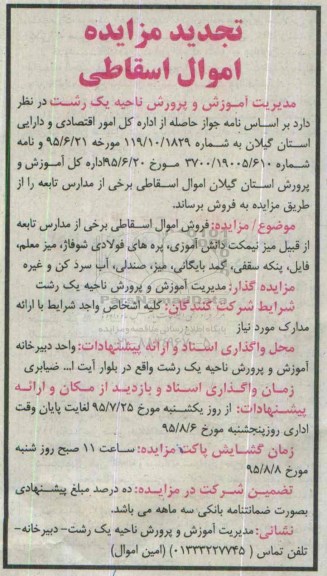 تجدید مزایده
اموال اسقاطی
مدیریت آموزش و پرورش ناحیه یک رشت در نظر
دارد بر اساس نامه جواز حاصله از اداره کل امور اقتصادی و دارایی
استان گیلان به شماره ۱۱۹/۱۰/۱۸۲۹ مورخه ۹۵/۶/۲۱ و نامه
شماره ۳۷۰۰/۱۹۰۰۵/۶۱۰ مورخ ۹۵/۶/۲۰اداره کل آموزش و
پرورش استان گیلان اموال اسقاطی برخی از مدارس تابعه را از
طریق مزایده به فروش برساند.
موضوع/ مزایده: فروش اموال اسقاطی برخی از مدارس تابعه
از قبیل میز نیمکت دانش آموزی، پره های فولادی شوفاژ، میز معلم،
فایل، پنکه سقفی، کمد بایگانی، میز، صندلی، آب سرد کن و غیره
مزایده گذار: مدیریت آموزش و پرورش ناحیه یک رشت
شرایط شرکت کنندگان: کلیه اشخاص واجد شرایط با ارائه
مدارک مورد نیاز
محل واگذاری اسناد و ارائه پیشنهادات: واحد دبیرخانه
آموزش و پرورش ناحیه یک رشت واقع در بلوار آیت ا... ضیابری
زمان واگذاری اسناد و بازدید از مکان و ارائه
پیشنهادات: از روز یکشنبه مورخ ۹۵/۷/۲۵ لغایت پایان وقت
اداری روزپنجشنبه مورخ ۹۵/۸/۶
زمان گشایش پاکت مزایده: ساعت ۱۱ صبح روز شنبه
مورخ ۹۵/۸/۸
تضمین شرکت در مزایده: ده درصد مبلغ پیشنهادی
بصورت ضمانتنامه بانکی سه ماهه می باشد.
نشانی: مدیریت آموزش و پرورش ناحیه یک رشت- دبیرخانه-
تلفن تماس ( ۰۱۳۳۳۲۲۷۷۴۵) (امین اموال)